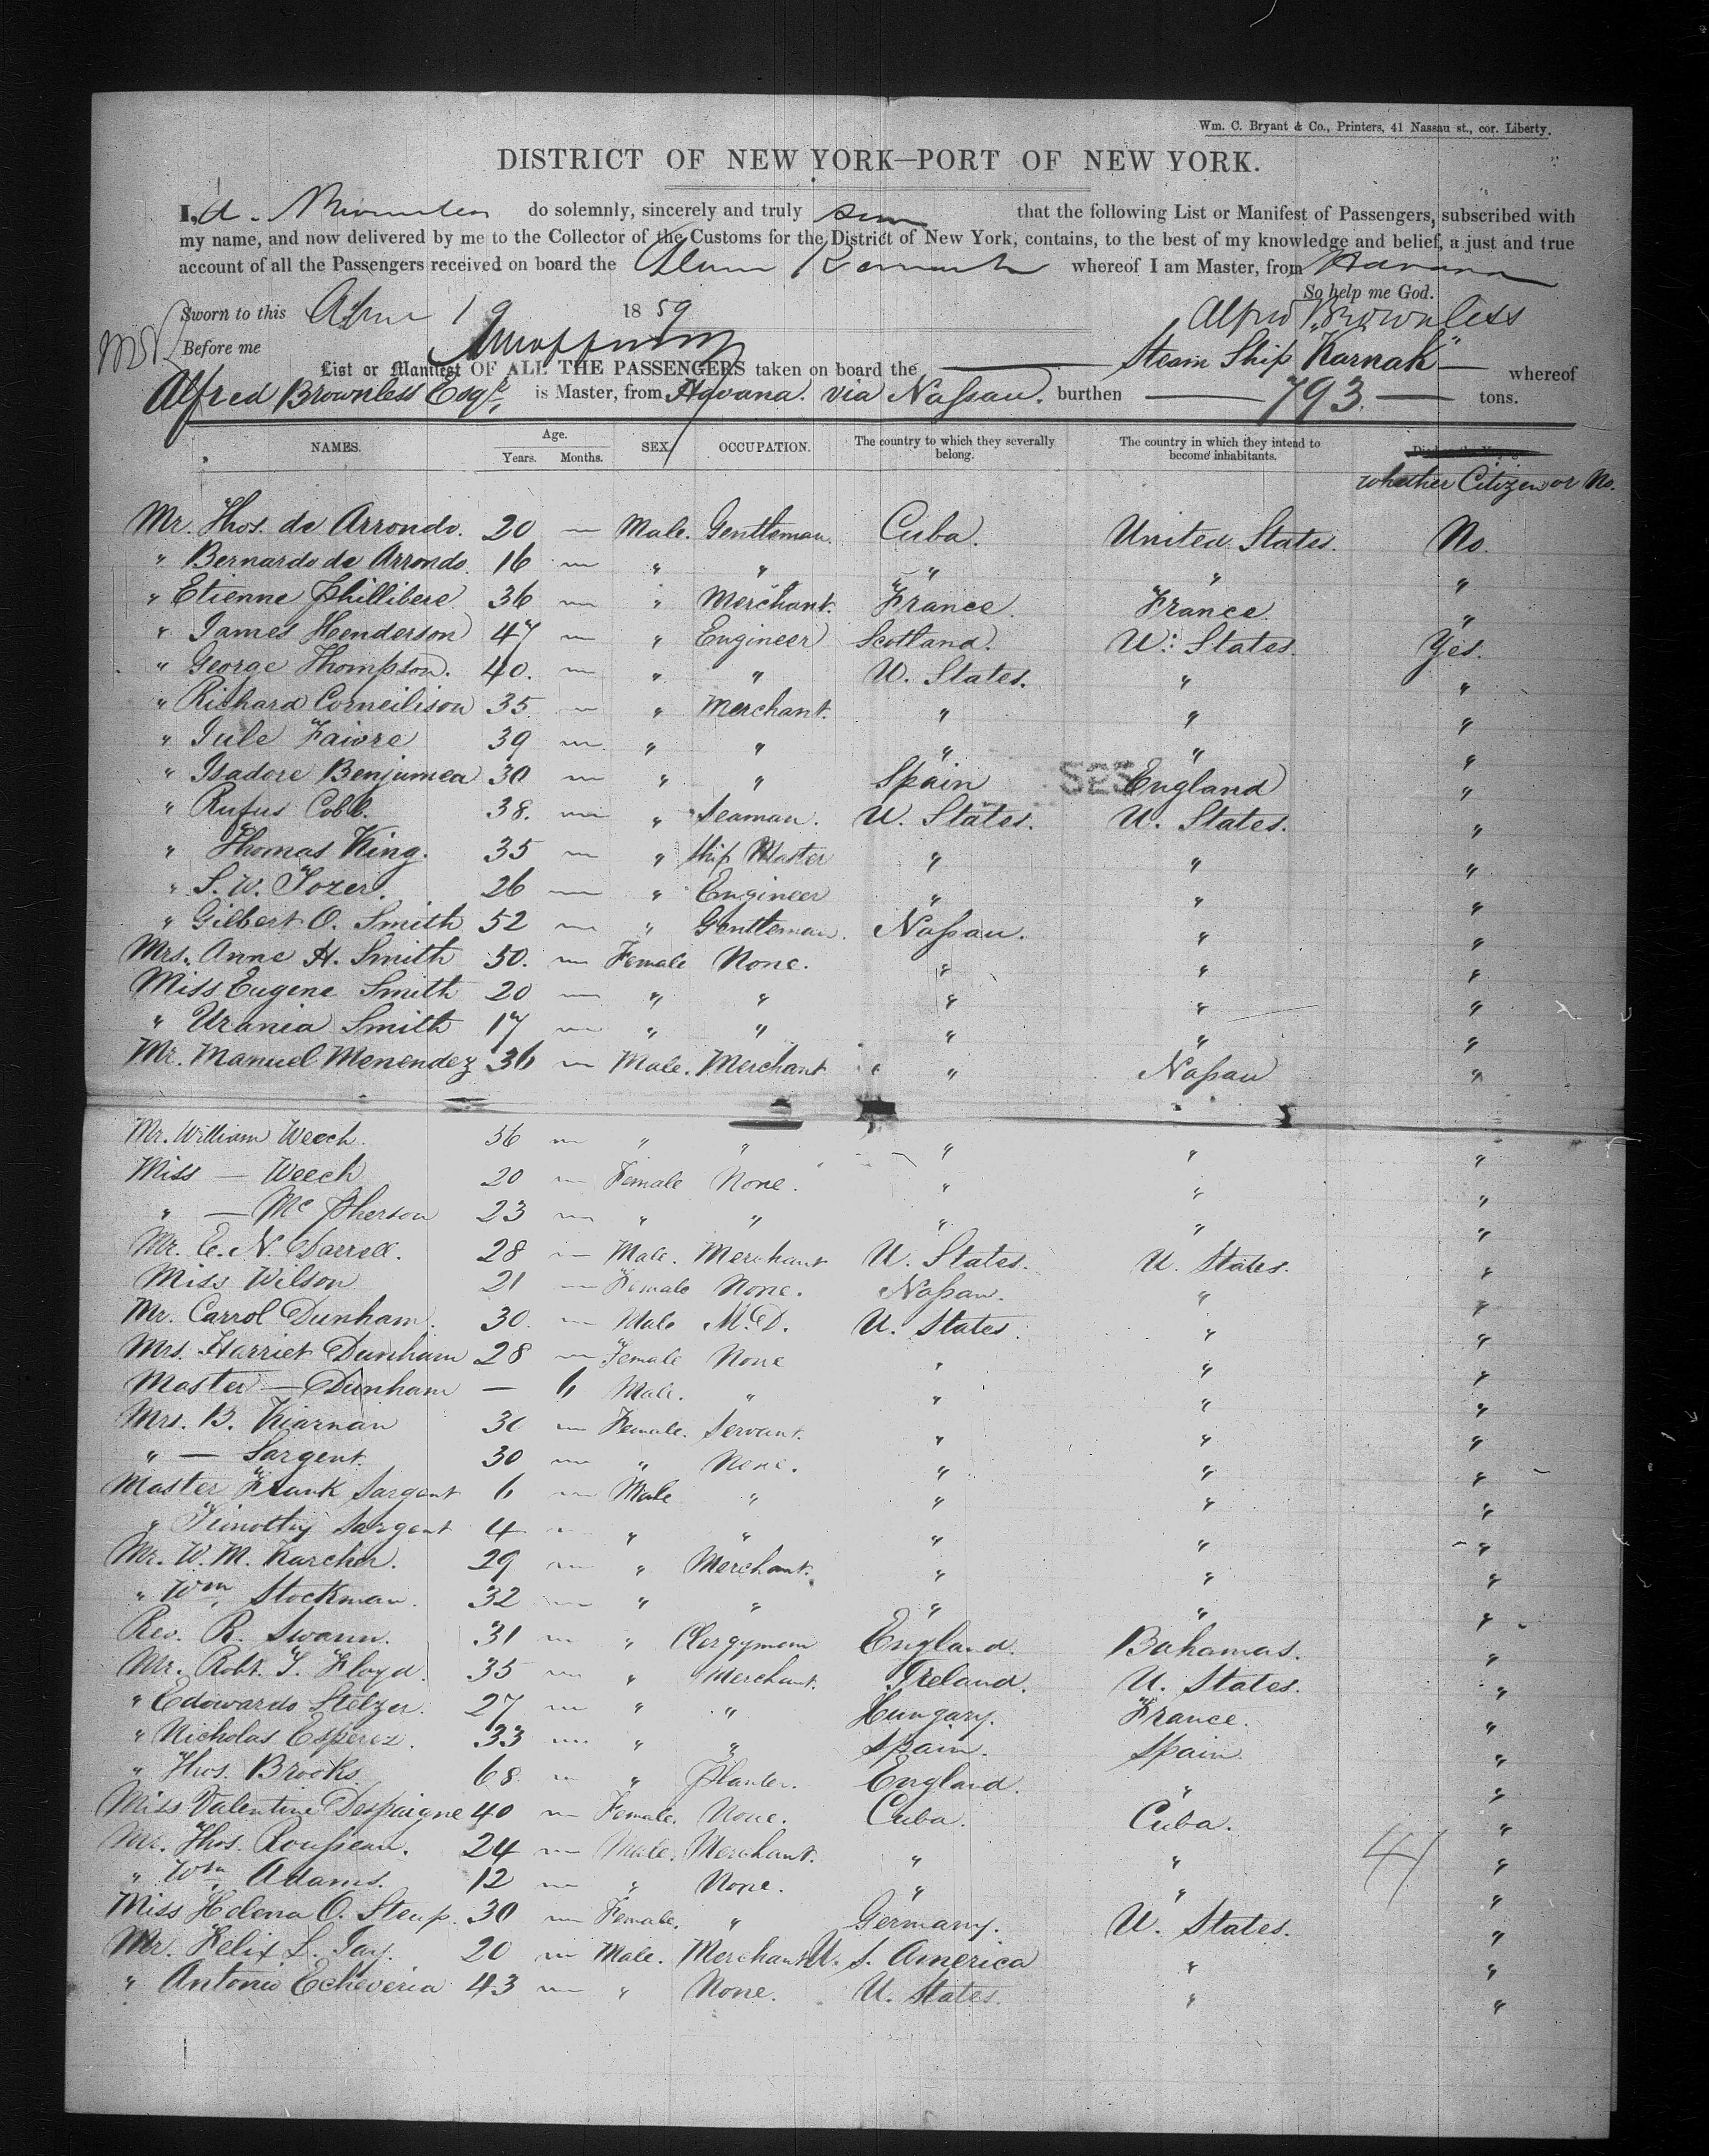 Wm. C. Bryant & Co., Printers, 41 Nassau st., cor. Liberty.
DISTRICT OF NEW YORK—PORT OF NEW YORK.
I, A. do solemnly, sincerely and truly that the following List or Manifest of Passengers, subscribed with
my name, and now delivered by me to the Collector of the Customs for the District of New York, contains, to the best of my knowledge and belief, a just and true
account of all the Passengers received on board the Karnak whereof I am Master, from Havana
So help me God.
Sworn to this April 19 1859 Alfred Brownless
Before me
List or Manifest OF ALL THE PASSENGERS taken on board the — Steam Ship "Karnak" — whereof
Alfred Brownless Esqr. is Master, from Havana. via Nassau. burthen — 793. — tons.
NAMES. Age. Years. Months. SEX. OCCUPATION. The country to which they severally belong. The country in which they intend to become inhabitants.
whether Citizen or No.
Mr. Thos. de Arrondo. 20 — Male. Gentleman. Cuba. United States. No.
" Bernardo de Arrondo. 16 — " " " " "
" Etienne Phillibere 36 — " Merchant. France. France. "
" James Henderson 47 — " Engineer Scotland. U. States. Yes.
" George Thompson. 40. — " " U. States. " "
" Richard Corneilison 35 — " Merchant. " " "
" Jule Faivre 39 — " " " " "
" Isadore Benjumea 30 — " " Spain 525 England "
" Rufus Cobb. 38. — " Seaman. U. States. U. States. "
" Thomas King. 35 — " Ship Master " " "
" S. W. Tozer. 26 — " Engineer " " "
" Gilbert O. Smith 52 — " Gentleman. Nassau. " "
Mrs. Anne H. Smith 50. — Female None. " " "
Miss Eugene Smith 20 — " " " " "
" Urania Smith 17 — " " " " "
Mr. Manuel Menendez 36 — Male. Merchant " Nassau "
Mr. William Weech. 36 — " " " " "
Miss — Weech 20 — Female None. " " "
" — McPherson 23 — " " " " "
Mr. E. N. Darrell. 28 — Male. Merchant U. States. U. States. "
Miss Wilson 21 — Female None. Nassau. " "
Mr. Carrol Dunham. 30. — Male M.D. U. States. " "
Mrs. Harriet Dunham 28 — Female None " " "
Master — Dunham — 6 Male. " " " "
Mrs. B. Kiarnan 30 — Female. Servant. " " "
" — Sargent. 30 — " None. " " "
Master Frank Sargent 6 — Male " " " "
" Timothy Sargent 4 — " " " " "
Mr. W. M. Karcher. 29 — " Merchant. " " "
" Wm. Stockman. 32 — " " " " "
Rev. R. Swann. 31 — " Clergyman England. Bahamas. "
Mr. Robt. T. Floyd. 35 — " Merchant. Ireland. U. States. "
" Edowardo Stelzer. 27 — " " Hungary. France. "
" Nicholas Esperez. 33 — " " Spain. Spain. "
" Thos. Brooks. 68. — " Planter. England. " "
Miss Valentine Despaigne 40 — Female. None. Cuba. Cuba. "
Mr. Thos. Rousseau. 24 — Male. Merchant. " " "
" Wm. Adams. 12 — " None. " " "
Miss Helena O. Steup. 30 — Female. " Germany. U. States. "
Mr. Felix L. Jay. 20 — Male. Merchant U. S. America " "
" Antonio Echeveria 43 — " None. U. States. " "
41